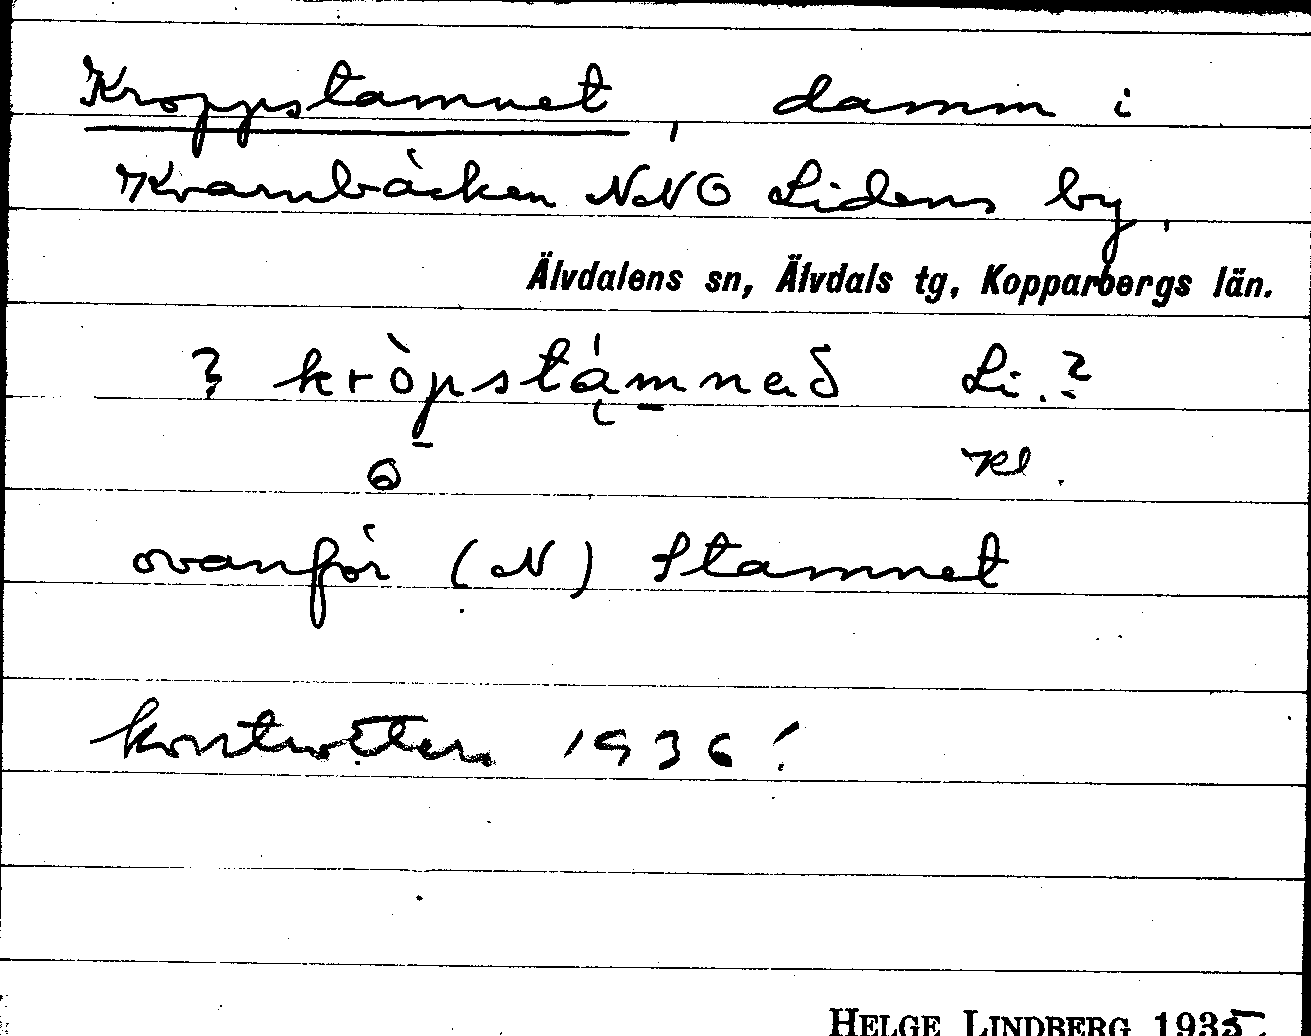 Kroppstamnet, damm i
Kvarnbäcken NNO Lidens by.
Älvdalens sn, Älvdals tg, Kopparbergs län.
? kròpstámnað Li.?
Kl.
ovanför (N) Stamnet
1936!
HELGE LINDBERG 1935